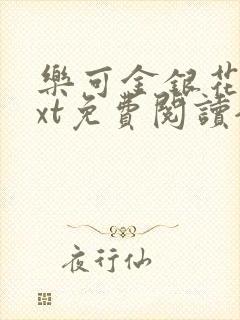 樂可金銀花
xt免費閱讀
夜行仙